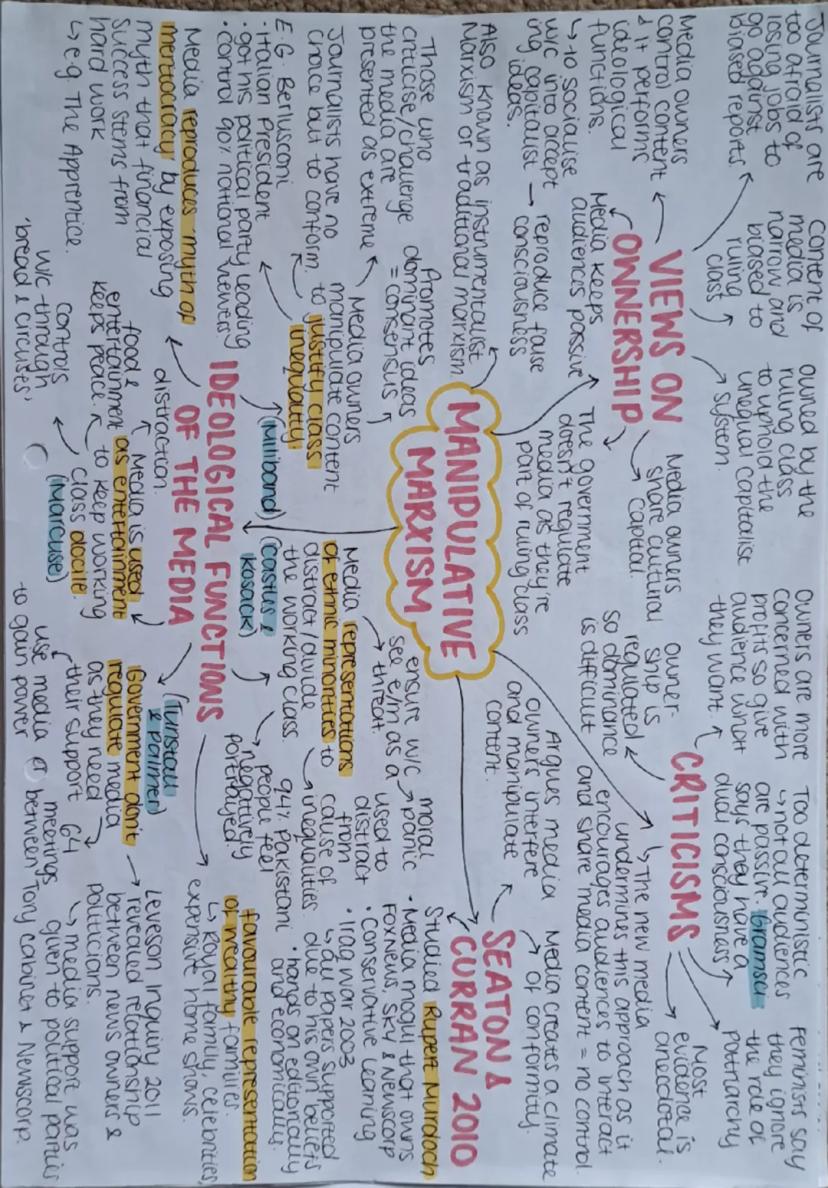 Journalists are
too afraid of
losing jobs to
go against
biased reports
Content of
media is
narrow and
biased to
ruling
class
owned by the
ruling class
to uphold the
unequal capitalist
system.
Media owners
control content
& it performs
ideological
functions.
↳ to socialise
w/c into accept
ing capitalist
ideas.
→ reproduce false
consciousness
VIEWS ON
OWNERSHIP
Media keeps
audiences passive
Media owners
share cultural
capital.
The government
doesn't regulate
media as they're
part of ruling class
Also known as instrumentalist
Marxism or traditional marxism.
MANIPULATIVE
MARXISM
Owners are more
concerned with
profits so give
audience what
they want.
Too deterministic
↳ not all audiences
are passive. Gramsci
says they have a
dual consciousness
Feminists say
they ignore
the role of
patriarchy
owner-
ship is
regulated
so dominance
is difficult
CRITICISMS
Most
evidence is
anecdotal.
↳ The new media
undermines this approach as it
encourages audiences to interact
and share media content = no control
Argues media
owners interfere
and manipulate
content.
Media creates a climate
of conformity.
SEATON &
CURRAN 2010
Studied Rupert Murdoch
• Media mogul that owns
Fox News, Sky & Newscorp
• Conservative leaning
• Iraq war 2003
↳ all papers supported
due to his own beliefs
• hands on editorially
and economically.
Those who
criticise/challenge
the media are
presented as extreme
Promotes
dominant ideas
= consensus
Journalists have no
choice but to conform.
Media owners
manipulate content
to justify class
inequality
E.G. Berlusconi
• Italian President
• got his political party leading
• control 90% national viewers
(Miliband)
Media reproduces myth of
meritocracy by exposing
myth that financial
success stems from
hard work
↳ e.g. The Apprentice.
IDEOLOGICAL FUNCTIONS
OF THE MEDIA
distraction.
Media is used
as entertainment
to keep working
class docile
(Marcuse)
food &
entertainment
keeps peace.
controls
w/c through
'bread & circuses'
ensure w/c
see e/m as a
threat.
moral
panic
used to
distract
from
cause of
inequalities.
Media representations
of ethnic minorities to
distract / divide
the working class.
(Castles &
Kosack)
94% Pakistani
people feel
negatively
portrayed.
favourable representation
of wealthy families.
↳ Royal family, celebrities,
expensive home shows.
(Tunstall
& Palmer)
Government don't
regulate media
as they need
their support
use media
to gain power
Leveson inquiry 2011
→ revealed relationship
between news owners &
politicians.
↳ media support was
given to political parties
64
meetings
between Tory cabinet & Newscorp.